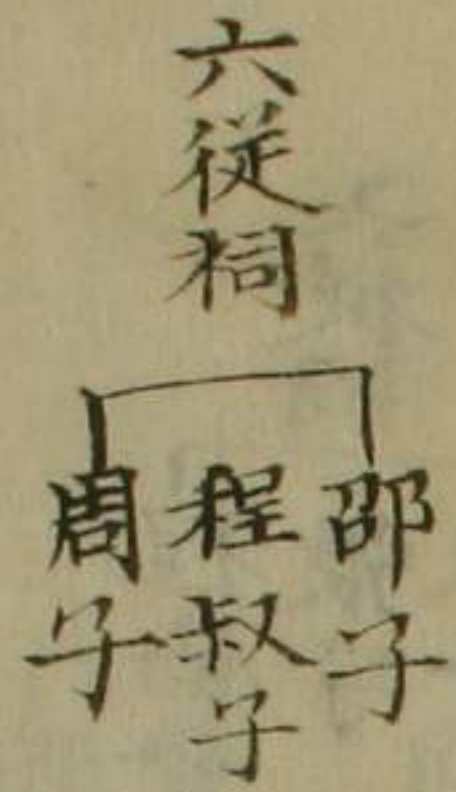 六従祠
邵子
程叔子
周子